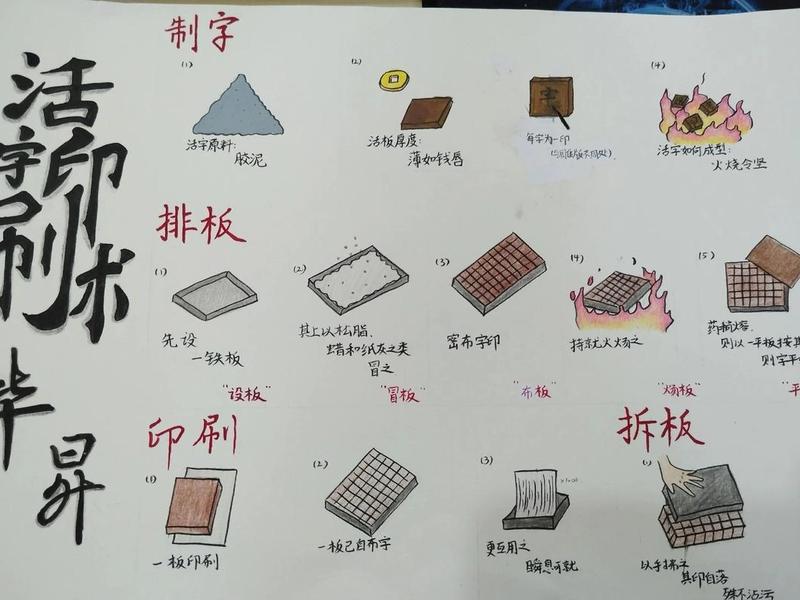 活字印刷术
毕昇
制字
(1)
活字原料:
胶泥
(2)
活板厚度:
薄如钱唇
每字为一印
(4)
活字如何成型:
火烧令坚
排板
(1)
先设
一铁板
"设板"
(2)
其上以松脂、
蜡和纸灰之类
冒之
"冒板"
(3)
密布字印
"布板"
(4)
持就火炀之
"炀板"
(5)
药稍熔,
则以一平板按其
则字平
"平
印刷
(1)
一板印刷
(2)
一板已自布字
(3)
x1000
更互用之
瞬息可就
拆板
(1)
以手拂之
其印自落
殊不沾污